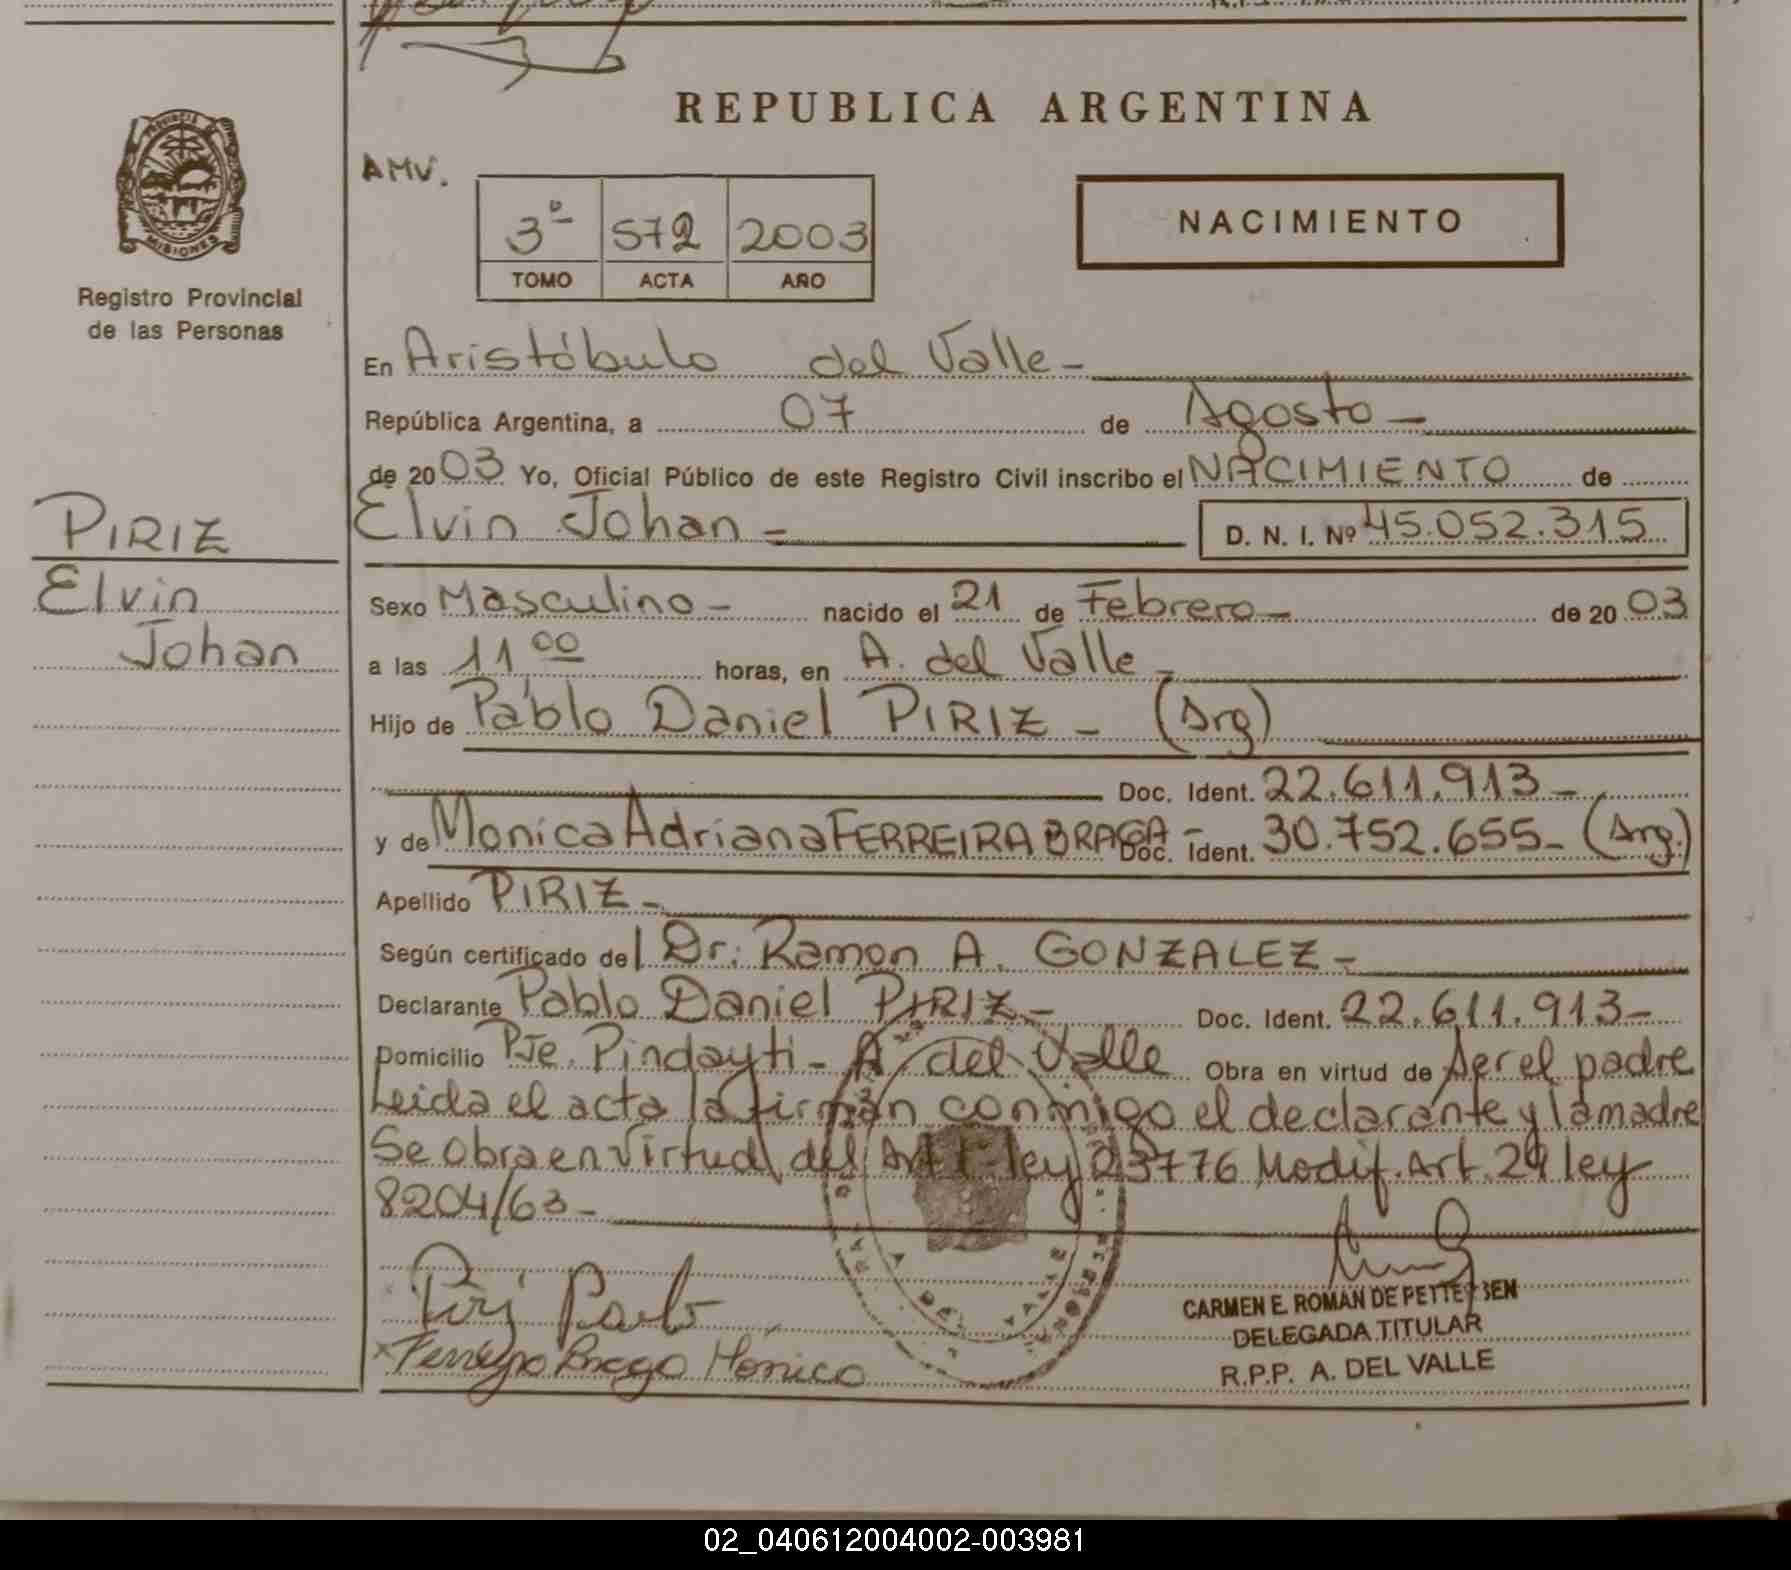 REPUBLICA ARGENTINA
PROVINCIA DE
MISIONES
Registro Provincial
de las Personas
AMV.
3º 572 2003
TOMO ACTA AÑO
NACIMIENTO
En Aristóbulo del Valle -
República Argentina, a 07 de Agosto -
de 2003 Yo, Oficial Público de este Registro Civil inscribo el NACIMIENTO de
PIRIZ
Elvin
Johan
Elvin Johan = D. N. I. Nº 45.052.315
Sexo Masculino - nacido el 21 de Febrero - de 2003
a las 11 00 horas, en A. del Valle -
Hijo de Pablo Daniel PIRIZ - (Arg)
Doc. Ident. 22.611.913 -
y de Monica Adriana FERREIRA BRAGA - Doc. Ident. 30.752.655 - (Arg.)
Apellido PIRIZ -
Según certificado del Dr: Ramon A. GONZALEZ -
Declarante Pablo Daniel PIRIZ - Doc. Ident. 22.611.913 -
Domicilio Pje. Pindayti - A del Valle Obra en virtud de ser el padre
Leida el acta la firman conmigo el declarante y la madre
Se obra en virtud del Art 1º ley 23776 Modif. Art. 29 ley
8204/63 -
Piriz Pablo
x Ferreyra Braga Mónica
CARMEN E. ROMAN DE PETTERSEN
DELEGADA TITULAR
R.P.P. A. DEL VALLE
02_040612004002-003981